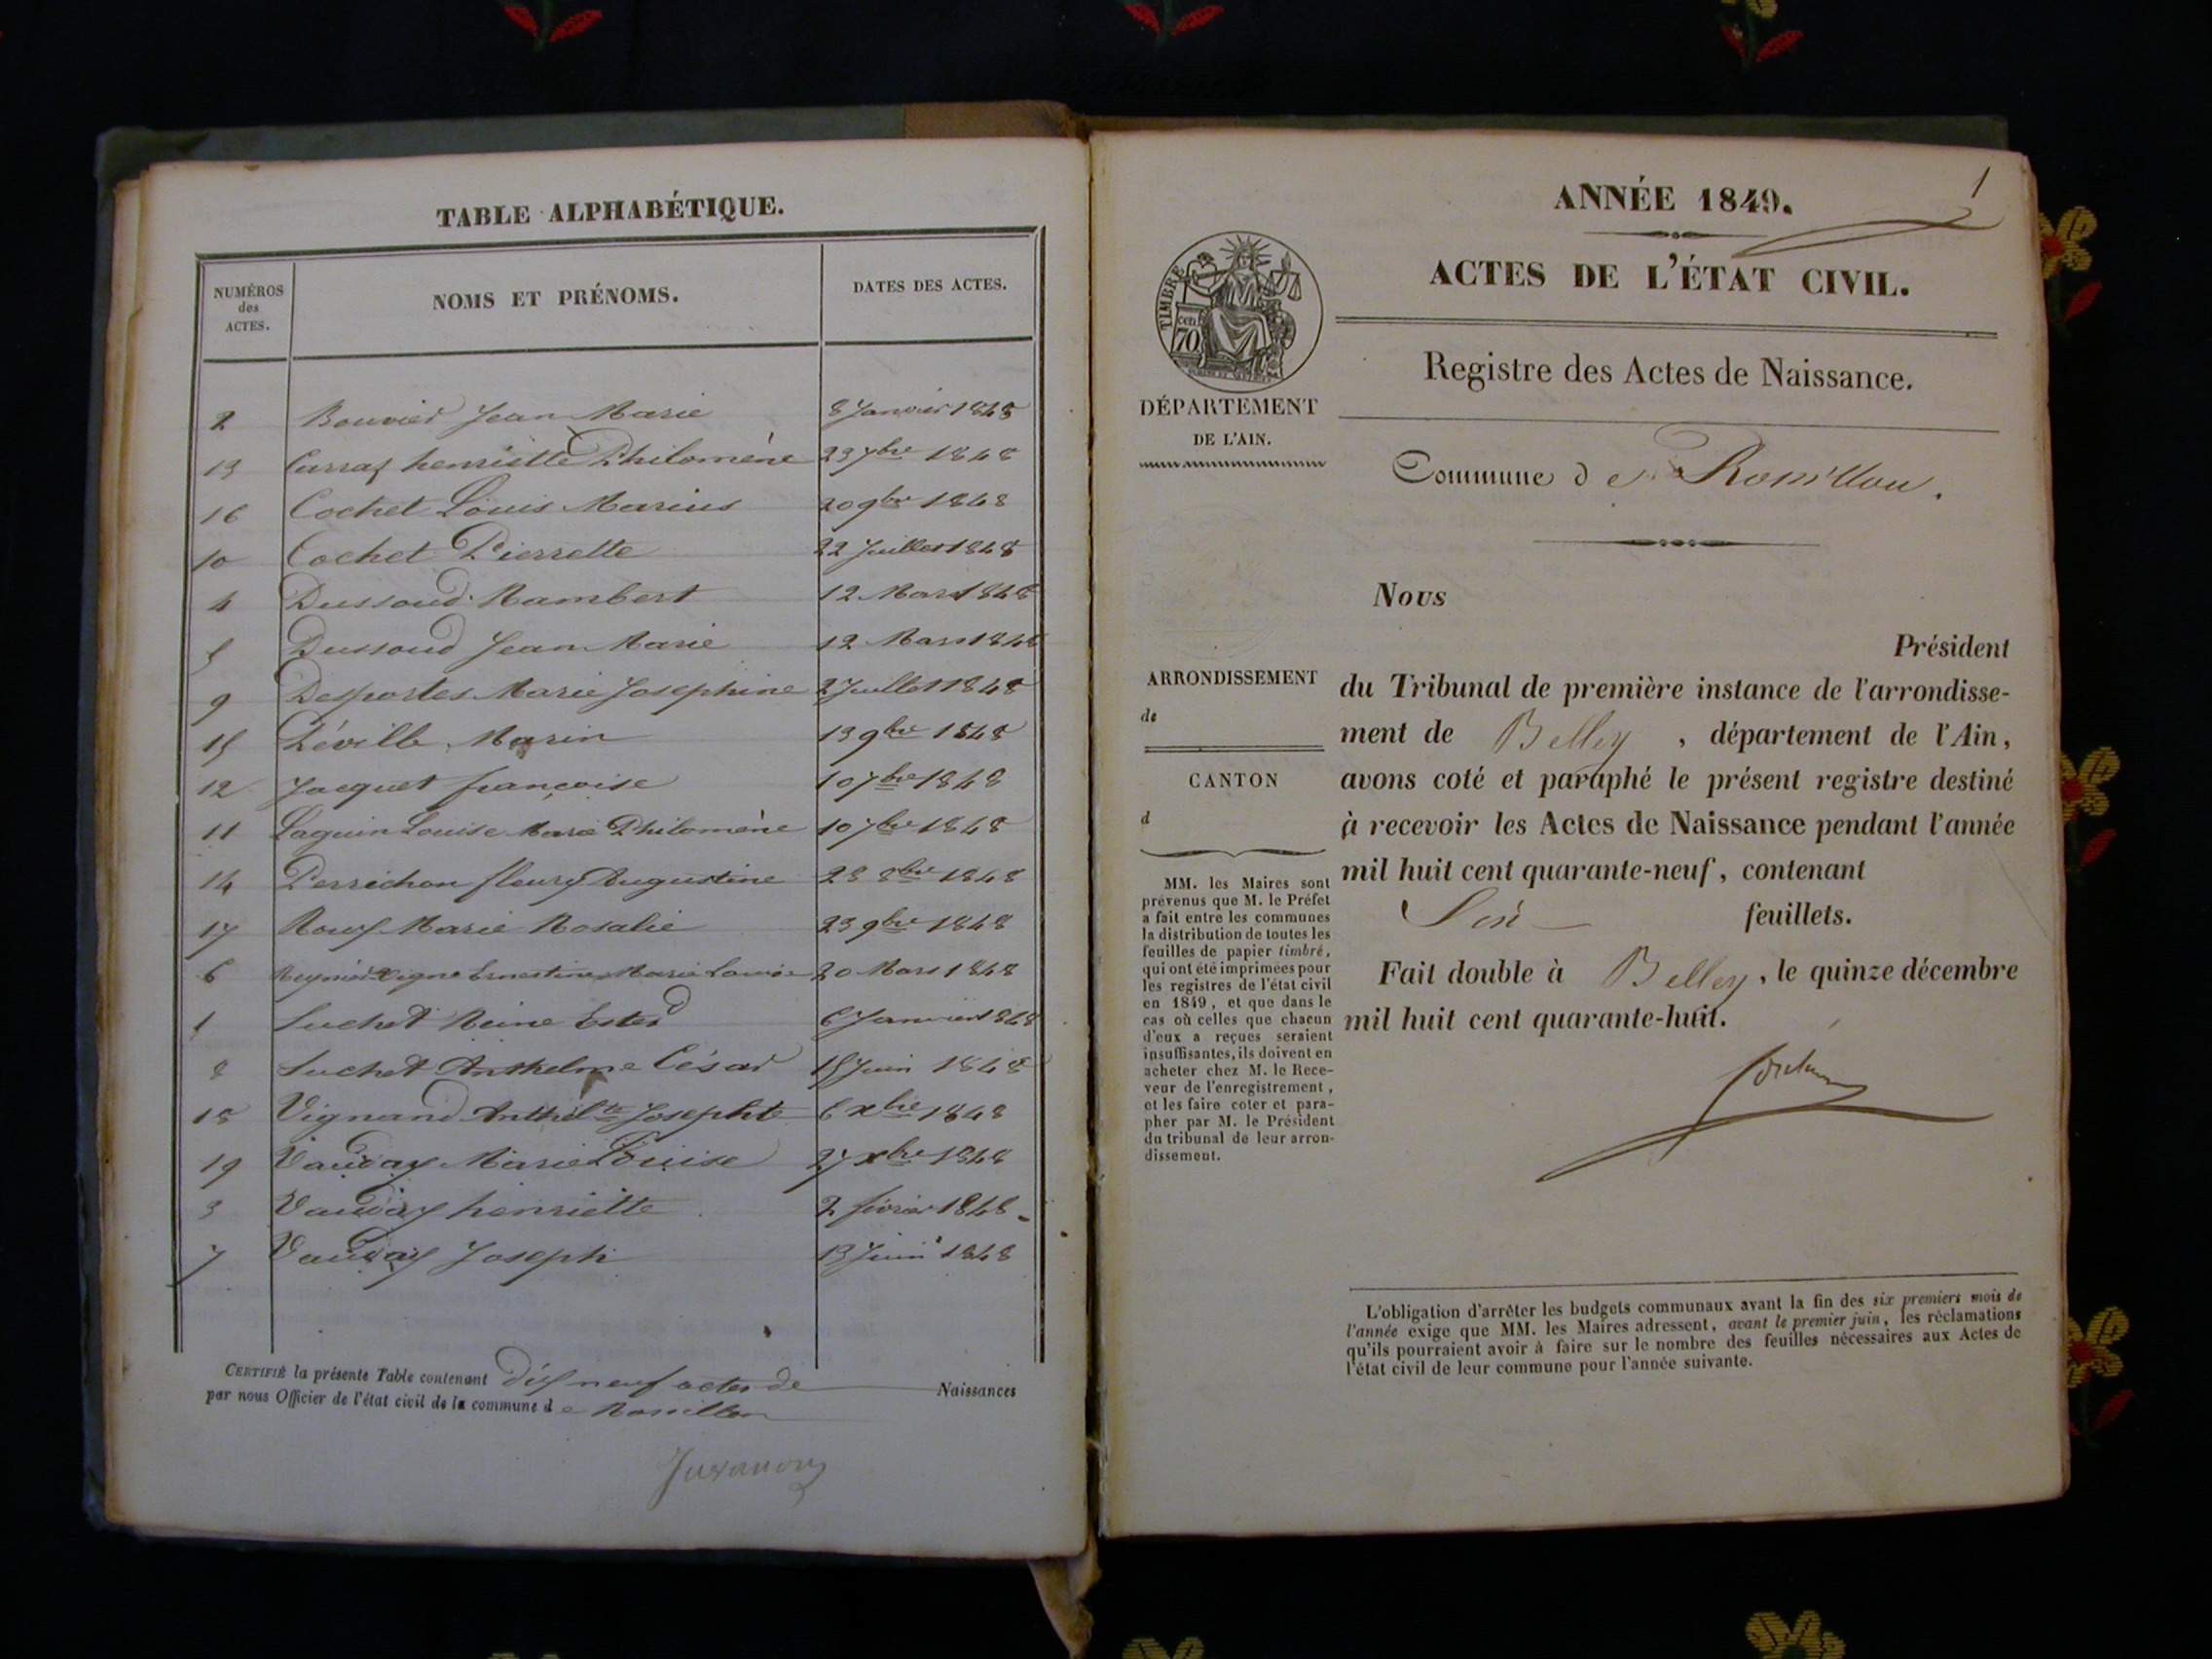 TABLE ALPHABÉTIQUE.
NUMÉROS
des
ACTES.
NOMS ET PRÉNOMS.
DATES DES ACTES.
2 Bouvier Jean Marie 8 Janvier 1848
13 Carraz henriette Philomène 23 7bre 1848
16 Cochet Louis Marius 20 9bre 1848
10 Cochet Pierrette 22 Juillet 1848
4 Dussoud Rambert 12 Mars 1848
5 Dussoud Jean Marie 12 Mars 1848
9 Desportes Marie Josephine 2 Juillet 1848
15 Déville Marin 13 9bre 1848
12 Jacquet françoise 10 7bre 1848
11 Laguin Louise Marie Philomène 10 7bre 1848
14 Perrichon fleury Augustine 28 8bre 1848
17 Roux Marie Rosalie 23 9bre 1848
6 Ernestine Marie Louise 20 Mars 1848
1 Suchet Reine Ester 6 Janvier 1848
8 Suchet Anthelme César 15 Juin 1848
18 Vignand Josephte 6 xbre 1848
19 Vauday Marie Louise 27 xbre 1848
3 Vauday henriette 2 février 1848
7 Vauday Joseph 13 Juin 1848
CERTIFIÉ la présente Table contenant dix neuf actes de Naissances
par nous Officier de l'état civil de la commune de Rossillon
Juvanon
1
ANNÉE 1849.
ACTES DE L'ÉTAT CIVIL.
TIMBRE
cen
70
Registre des Actes de Naissance.
DÉPARTEMENT
DE L'AIN.
Commune de Rossillon.
Nous
Président
ARRONDISSEMENT
de
CANTON
d
du Tribunal de première instance de l'arrondisse-
ment de Belley, département de l'Ain,
avons coté et paraphé le présent registre destiné
à recevoir les Actes de Naissance pendant l'année
mil huit cent quarante-neuf, contenant
Six feuillets.
Fait double à Belley, le quinze décembre
mil huit cent quarante-huit.
MM. les Maires sont
prévenus que M. le Préfet
a fait entre les communes
la distribution de toutes les
feuilles de papier timbré,
qui ont été imprimées pour
les registres de l'état civil
en 1849, et que dans le
cas où celles que chacun
d'eux a reçues seraient
insuffisantes, ils doivent en
acheter chez M. le Rece-
veur de l'enregistrement,
et les faire coter et para-
pher par M. le Président
du tribunal de leur arron-
dissement.
L'obligation d'arrêter les budgets communaux avant la fin des six premiers mois de
l'année exige que MM. les Maires adressent, avant le premier juin, les réclamations
qu'ils pourraient avoir à faire sur le nombre des feuilles nécessaires aux Actes de
l'état civil de leur commune pour l'année suivante.